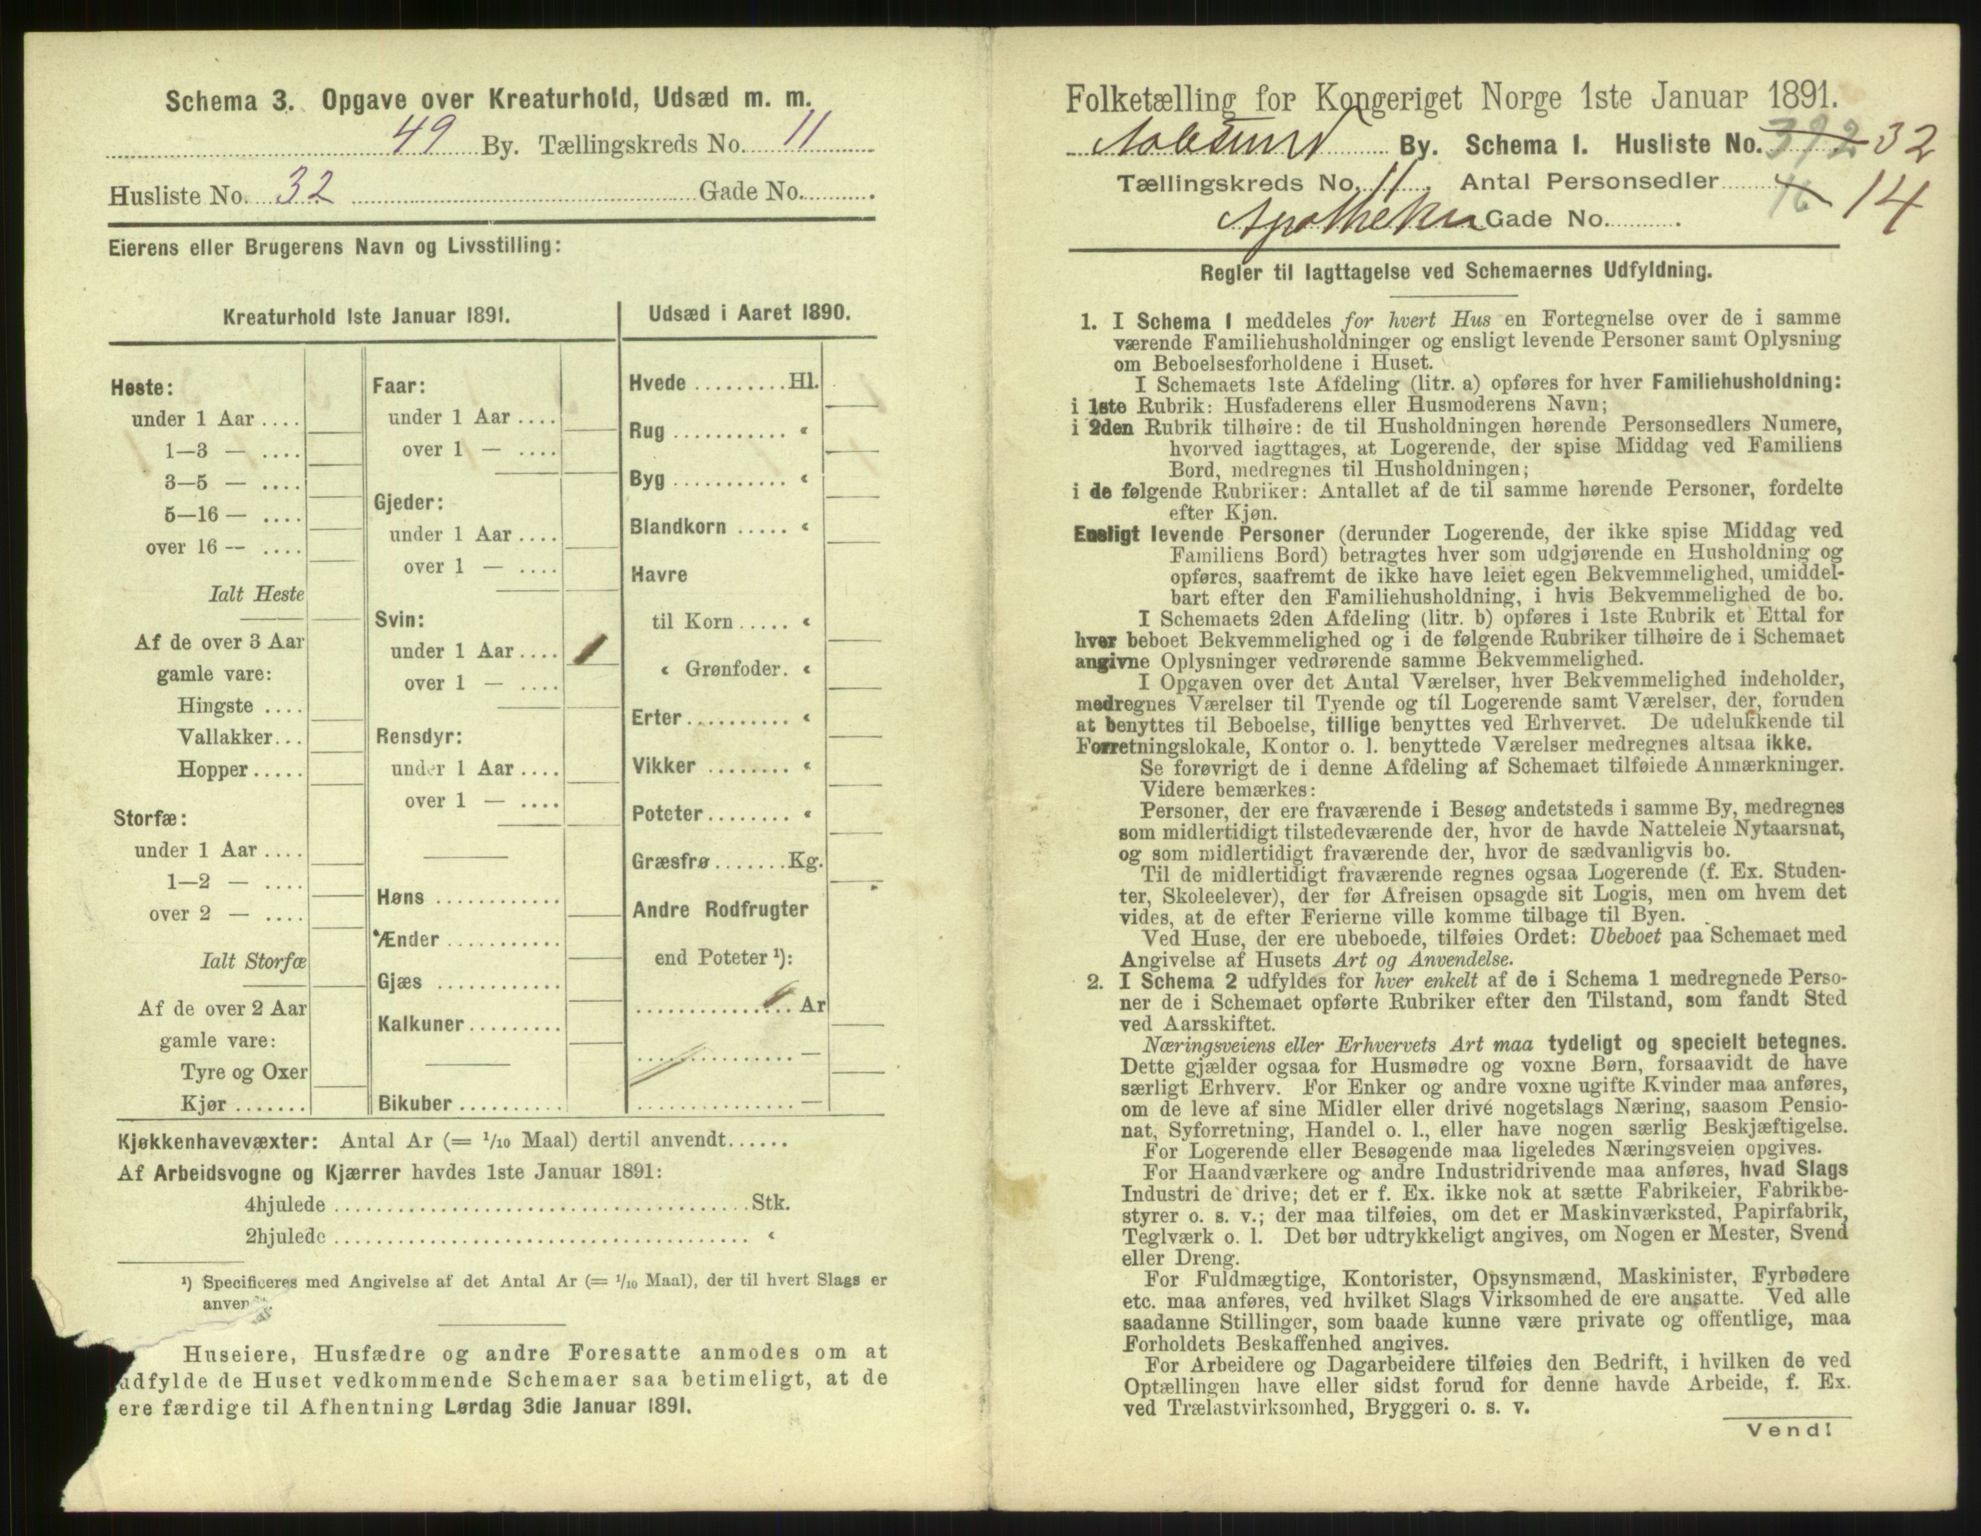 Schema 3. Opgave over Kreaturhold, Udsæd m. m.
49 By. Tællingskreds No. 11
Husliste No. 32 Gade No.
Eierens eller Brugerens Navn og Livsstilling:
Kreaturhold 1ste Januar 1891.
Heste:
under 1 Aar ....
1—3 — ....
3—5 — ....
5—16 — ....
over 16 — ....
Ialt Heste
Af de over 3 Aar
gamle vare:
Hingste ....
Vallakker...
Hopper.....
Storfæ:
under 1 Aar ....
1—2 — ....
over 2 — ....
Ialt Storfæ
Af de over 2 Aar
gamle vare:
Tyre og Oxer
Kjør .......
Faar:
under 1 Aar ....
over 1 — ....
Gjeder:
under 1 Aar ....
over 1 — ....
Svin:
under 1 Aar .... 1
over 1 — ....
Rensdyr:
under 1 Aar ....
over 1 — ....
Høns ............
Ænder ...........
Gjæs ............
Kalkuner.........
Bikuber..........
Udsæd i Aaret 1890.
Hvede .........Hl.
Rug ........... “
Byg ........... “
Blandkorn ..... “
Havre
til Korn ..... “
“ Grønfoder. “
Erter.......... “
Vikker ........ “
Poteter........ “
Græsfrø .......Kg.
Andre Rodfrugter
end Poteter ¹):
............... Ar
............... —
............... —
Kjøkkenhavevæxter: Antal Ar (= 1/10 Maal) dertil anvendt......
Af Arbeidsvogne og Kjærrer havdes 1ste Januar 1891:
4hjulede ......................................Stk.
2hjulede ...................................... “
¹) Specificeres med Angivelse af det Antal Ar (= 1/10 Maal), der til hvert Slags er
anven
Huseiere, Husfædre og andre Foresatte anmodes om at
udfylde de Huset vedkommende Schemaer saa betimeligt, at de
ere færdige til Afhentning Lørdag 3die Januar 1891.
Folketælling for Kongeriget Norge 1ste Januar 1891.
Aalesund By. Schema I. Husliste No. 392 32
Tællingskreds No. 11. Antal Personsedler 16 14
Apotheker Gade No.
Regler til Iagttagelse ved Schemaernes Udfyldning.
1. I Schema 1 meddeles for hvert Hus en Fortegnelse over de i samme
værende Familiehusholdninger og ensligt levende Personer samt Oplysning
om Beboelsesforholdene i Huset.
I Schemaets 1ste Afdeling (litr. a) opføres for hver Familiehusholdning:
i 1ste Rubrik: Husfaderens eller Husmoderens Navn;
i 2den Rubrik tilhøire: de til Husholdningen hørende Personsedlers Numere,
hvorved iagttages, at Logerende, der spise Middag ved Familiens
Bord, medregnes til Husholdningen;
i de følgende Rubriker: Antallet af de til samme hørende Personer, fordelte
efter Kjøn.
Ensligt levende Personer (derunder Logerende, der ikke spise Middag ved
Familiens Bord) betragtes hver som udgjørende en Husholdning og
opføres, saafremt de ikke have leiet egen Bekvemmelighed, umiddel-
bart efter den Familiehusholdning, i hvis Bekvemmelighed de bo.
I Schemaets 2den Afdeling (litr. b) opføres i 1ste Rubrik et Ettal for
hver beboet Bekvemmelighed og i de følgende Rubriker tilhøire de i Schemaet
angivne Oplysninger vedrørende samme Bekvemmelighed.
I Opgaven over det Antal Værelser, hver Bekvemmelighed indeholder,
medregnes Værelser til Tyende og til Logerende samt Værelser, der, foruden
at benyttes til Beboelse, tillige benyttes ved Erhvervet. De udelukkende til
Forretningslokale, Kontor o. l. benyttede Værelser medregnes altsaa ikke.
Se forøvrigt de i denne Afdeling af Schemaet tilføiede Anmærkninger.
Videre bemærkes:
Personer, der ere fraværende i Besøg andetsteds i samme By, medregnes
som midlertidigt tilstedeværende der, hvor de havde Natteleie Nytaarsnat,
og som midlertidigt fraværende der, hvor de sædvanligvis bo.
Til de midlertidigt fraværende regnes ogsaa Logerende (f. Ex. Studen-
ter, Skoleelever), der før Afreisen opsagde sit Logis, men om hvem det
vides, at de efter Ferierne ville komme tilbage til Byen.
Ved Huse, der ere ubeboede, tilføies Ordet: Ubeboet paa Schemaet med
Angivelse af Husets Art og Anvendelse.
2. I Schema 2 udfyldes for hver enkelt af de i Schema 1 medregnede Perso-
ner de i Schemaet opførte Rubriker efter den Tilstand, som fandt Sted
ved Aarsskiftet.
Næringsveiens eller Erhvervets Art maa tydeligt og specielt betegnes.
Dette gjælder ogsaa for Husmødre og voxne Børn, forsaavidt de have
særligt Erhverv. For Enker og andre voxne ugifte Kvinder maa anføres,
om de leve af sine Midler eller drive nogetslags Næring, saasom Pensio-
nat, Syforretning, Handel o. l., eller have nogen særlig Beskjæftigelse.
For Logerende eller Besøgende maa ligeledes Næringsveien opgives.
For Haandværkere og andre Industridrivende maa anføres, hvad Slags
Industri de drive; det er f. Ex. ikke nok at sætte Fabrikeier, Fabrikbe-
styrer o. s. v.; der maa tilføies, om det er Maskinværksted, Papirfabrik,
Teglværk o. l. Det bør udtrykkeligt angives, om Nogen er Mester, Svend
eller Dreng.
For Fuldmægtige, Kontorister, Opsynsmænd, Maskinister, Fyrbødere
etc. maa anføres, ved hvilket Slags Virksomhed de ere ansatte. Ved alle
saadanne Stillinger, som baade kunne være private og offentlige, maa
Forholdets Beskaffenhed angives.
For Arbeidere og Dagarbeidere tilføies den Bedrift, i hvilken de ved
Optællingen have eller sidst forud for denne havde Arbeide, f. Ex.
ved Trælastvirksomhed, Bryggeri o. s. v.
Vend!